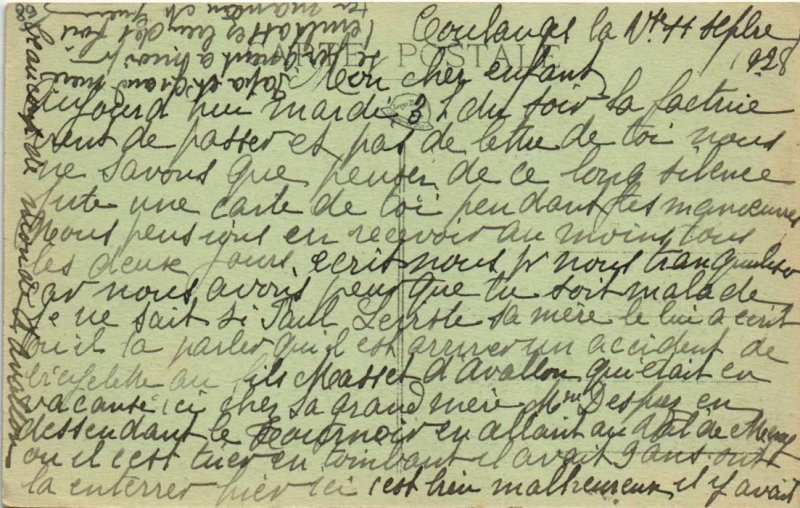 Coulanges la Vse 11 Sepbre
1928
CARTE POSTALE
Mon cher enfant
Aujourd hui mardi 3 h du soir la factrice
vient de passer et pas de lettre de toi nous
ne savons que penser de ce long silence
une carte de toi pendant tes manoeuvres
Nous pensions en recevoir au moins tous
les deux jours, ecrit nous pr nous tranquiliser
car nous avons peur que tu soit malade
Je ne sait si Paul sa mère le lui a ecrit
ou il la parler qu il est arriver un accident de
biciclette au fils Masset d'Avallon qui était en
vacanse ici cher sa grand mère Mme Despres en
dessendant le en allant au bal de
ou il cest tuer en tombant il avait 9 ans ont
la enterrer hier ici cest bien malheureux il y avait
beaucoup de monde d'Avallon
Papa et grand mère
se joint a moi pr
t'embrasser bien des fois
ta maman